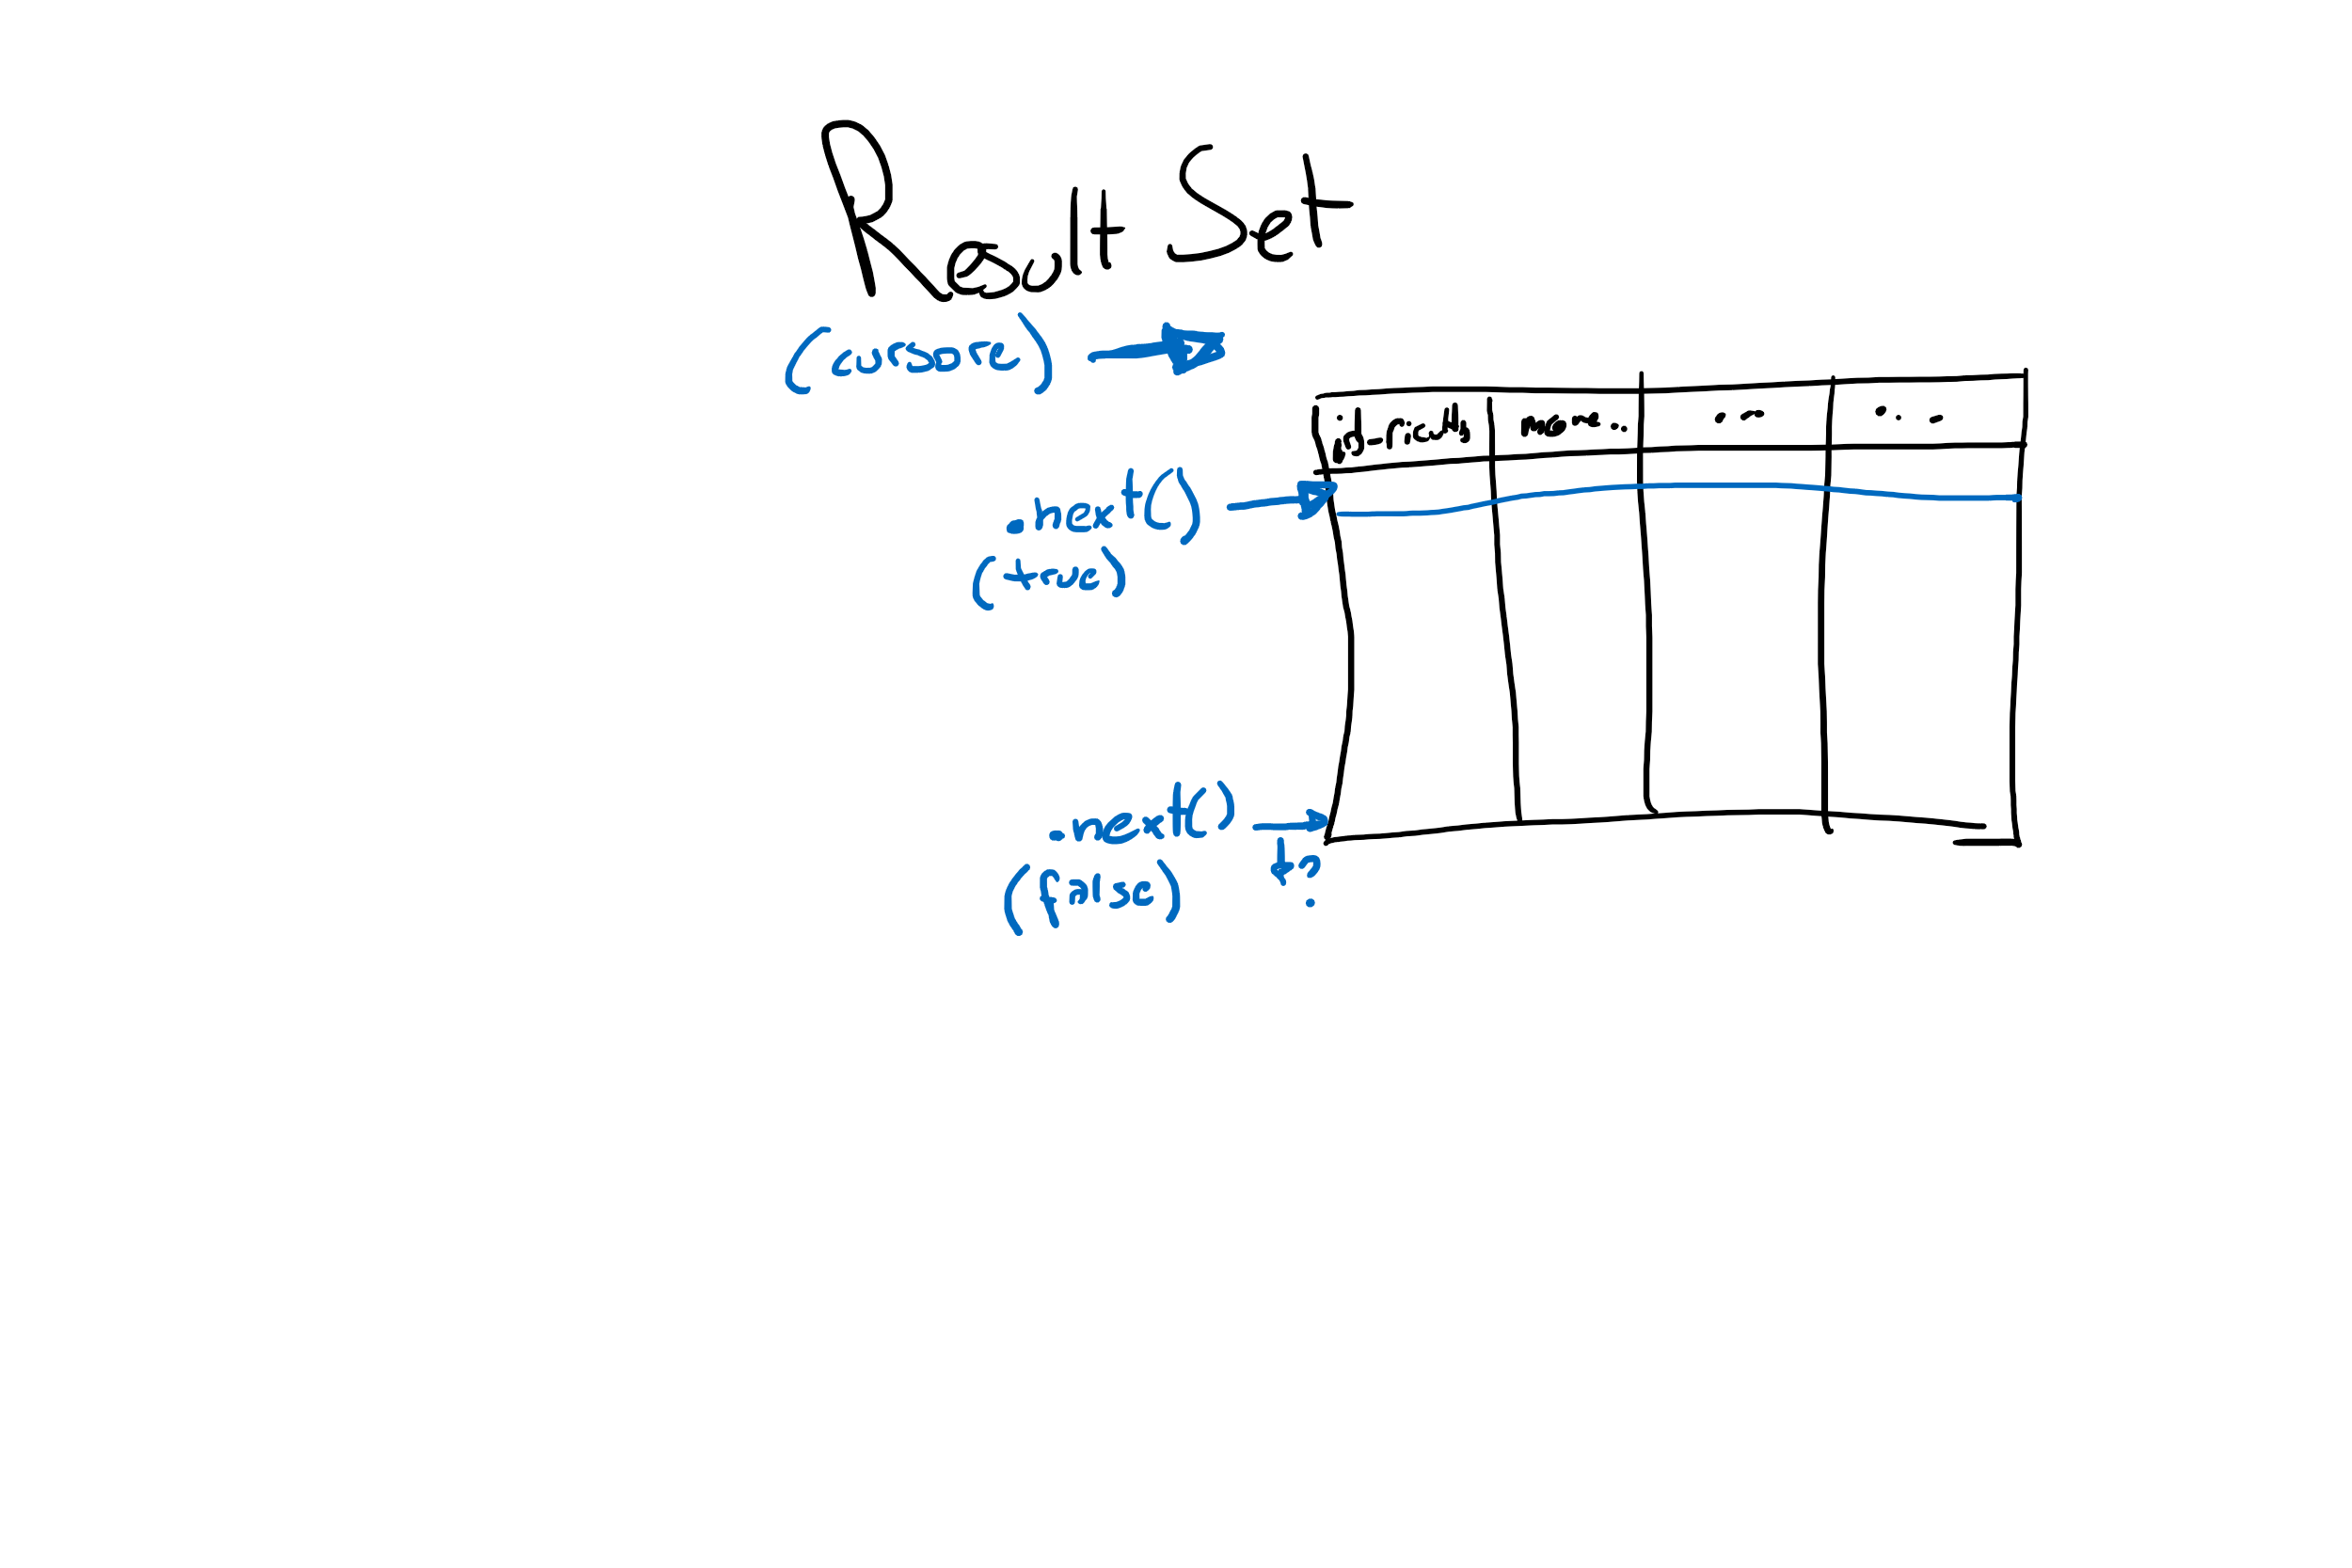 Result Set
(cursore)
id_ricetta nome.. ... ...
.next()
(true)
.next()
(false)
?